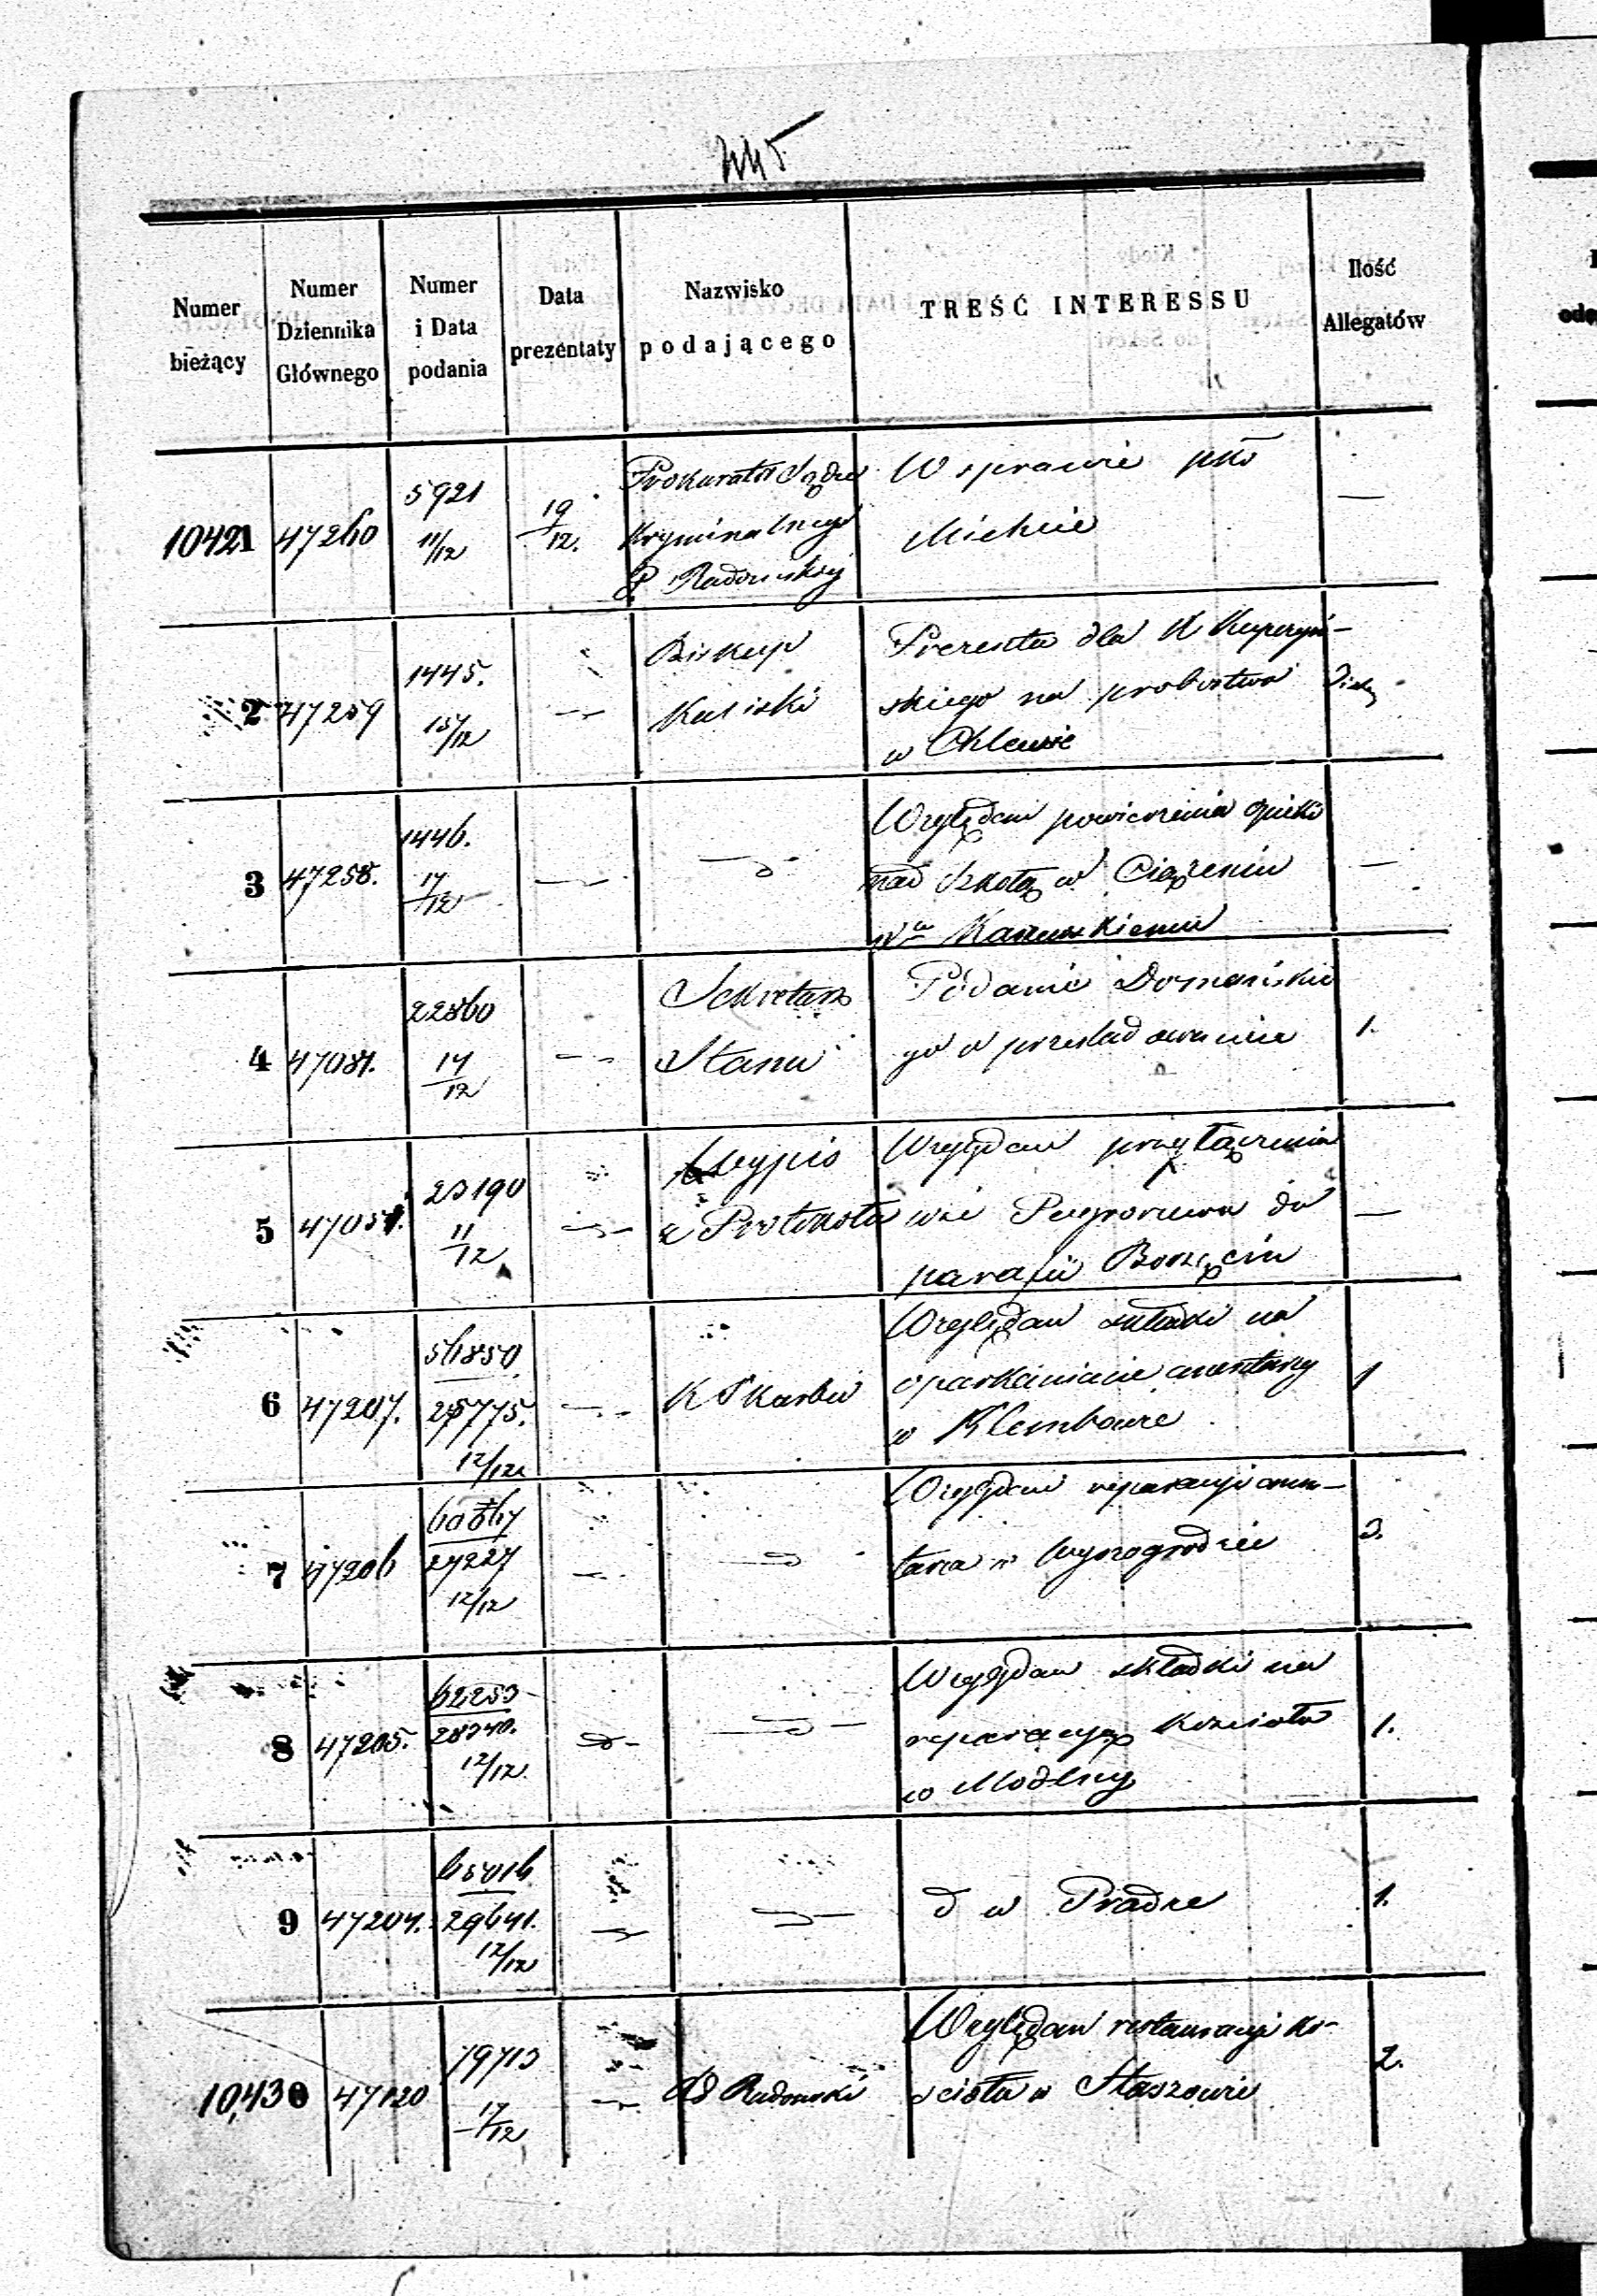 445
Numer bieżący
Numer Dziennika Głównego
Numer i Data podania
Data prezentaty
Nazwisko podającego
TREŚĆ INTERESSU
Ilość Allegatów
10421 47260 5921 11/12 19/12. Prokurator Sądu W sprawie pko —
Kryminalnego Michcie
P. Radomskiej
2 47259 1445. 15/12 — Biskup Prezenta dla X
Kaliski skiego na probostwo
w Chlewie
3 47258. 1446. 17/12 — Względem powierzenia opieki —
nad Szkołą w Ciążeniu
4 22860 14/12 — Sekretarz Podanie Domańskie 1.
Stanu go o prześladowanie
5 23190 11/12 — Wypis Względem przyłączenia —
z Protokołu wsi do
parafii Borzęcin
6 47207. 12/12 — K Skarbu Względem składki na 1
oparkanienie cmentarzy
w Klembowie
7 47206 27227 12/12 — Względem reparacyi cmen- 3.
tarza w Wyszogrodzie
8 47205. 62253 28340. 12/12. Względem składki na 1.
reparacyą Kościoła
w Modlny
9 47204. 65016 29641. 12/12 — d w Pradze 1.
10,430 47120 79713 17/12 — Rd Radomski Względem restauracyi ko- 2.
ścioła w Staszowie